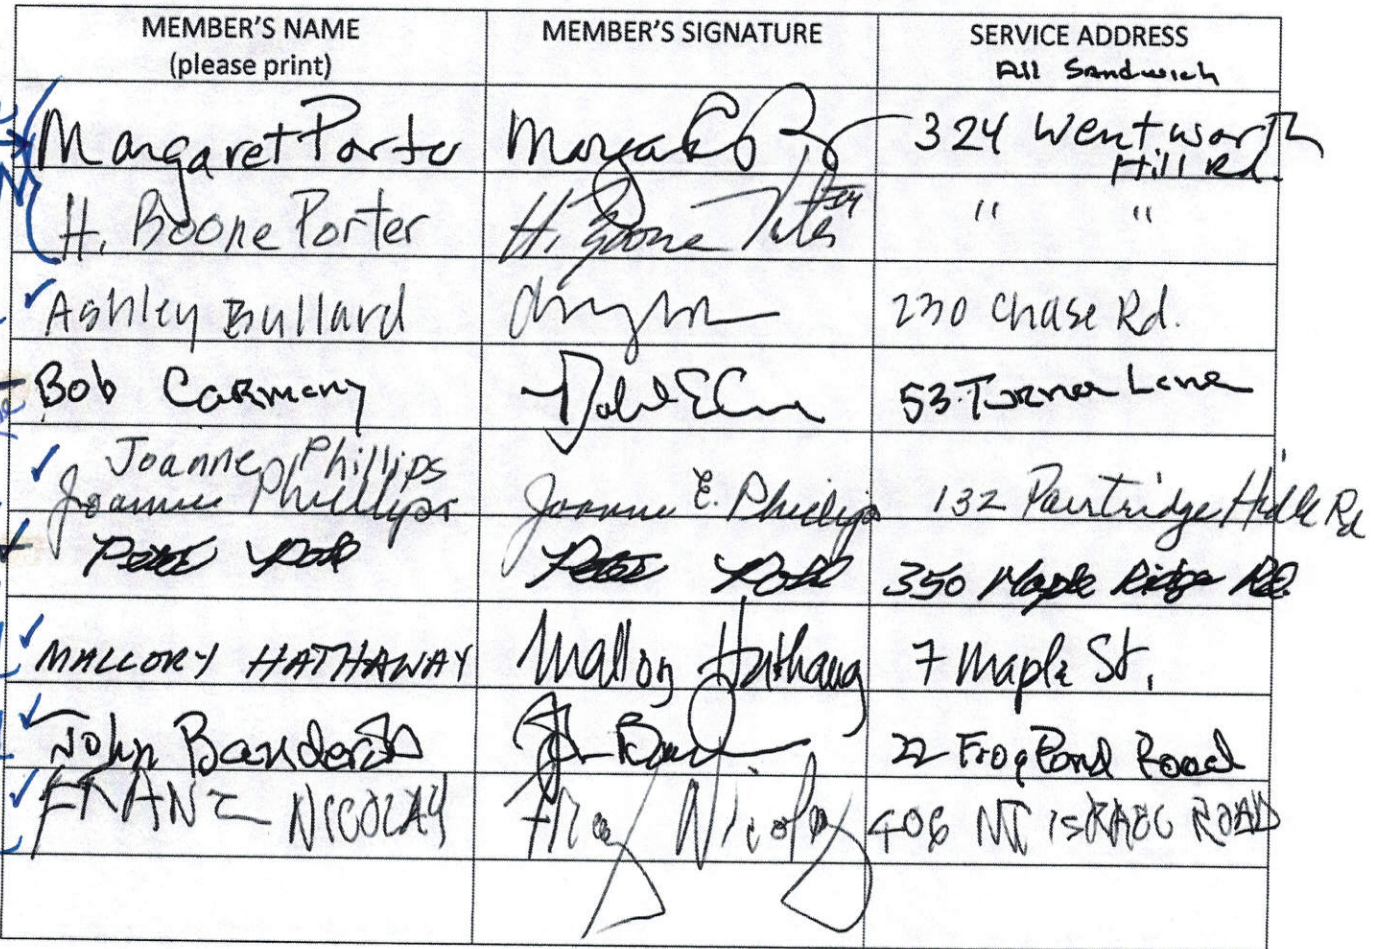 MEMBER'S NAME MEMBER'S SIGNATURE SERVICE ADDRESS
(please print) All Sandwich
Margaret Porter 324 Wentworth
Hill Rd.
H. Boone Porter H. Boone " "
Ashley Bullard 230 Chase Rd.
Bob Carmany 53 Turner Lane
Joanne Phillips
Joanne Phillips Joanne E. Phillips 132 Partridge Hill Rd
Peter Peter 350 Maple Ridge Rd.
MALLORY HATHAWAY Mallory Hathaway 7 Maple St.
John 22 Frog Pond Road
FRANZ NICOLAY Franz Nicolay 406 MT ISRAEL ROAD